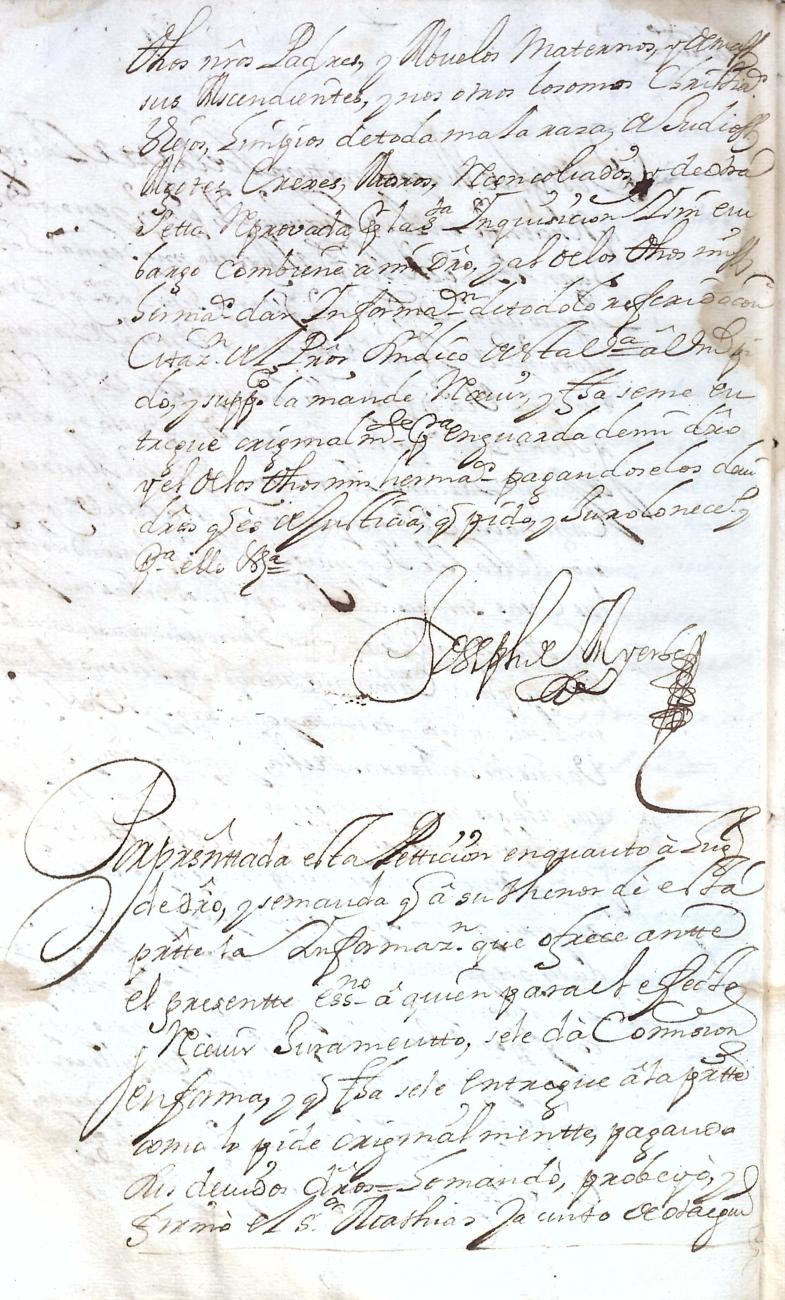 dhos nrôs Padres, y Abuelos Maternos, y demas
sus Ascendientes, y nos otros losomos Christia.s
Viejos, Limpios detoda mala raza, de Judios
Moros, Reconciliados, y de otra
Setta Reprovada Pr la Sta Inquisicion
bargo combiene â mi drô, y al delos dhos mis
herma.s dar Informa.n detodo lo referido con
Citaz.n del Prôr Sindico desta
do, y suppco la mande Reciuir, y fha seme en
tregue original Pra enguarda demi drô
y el delos dhos mis herma.s pagandoselos deui
drôs q es de Justicia, q pido, y Juro lo neces.o
Pa ello &a
Joseph de Ayerbe
Por presênttada esta Pettición enquanto â lugr
de drô, y semanda q â su thenor dê esta
partte la Informaz.n que ofrece antte
el presentte essno â quien para el efecto
Reciuir Juramentto, sele dà Comision
en forma, y q fha sele entregue â la partte
como lo pide original mentte, pagando
sus deuidos drôs = Lo mandò, probeyò, y
firmò el Sr Mathias Jacinto de